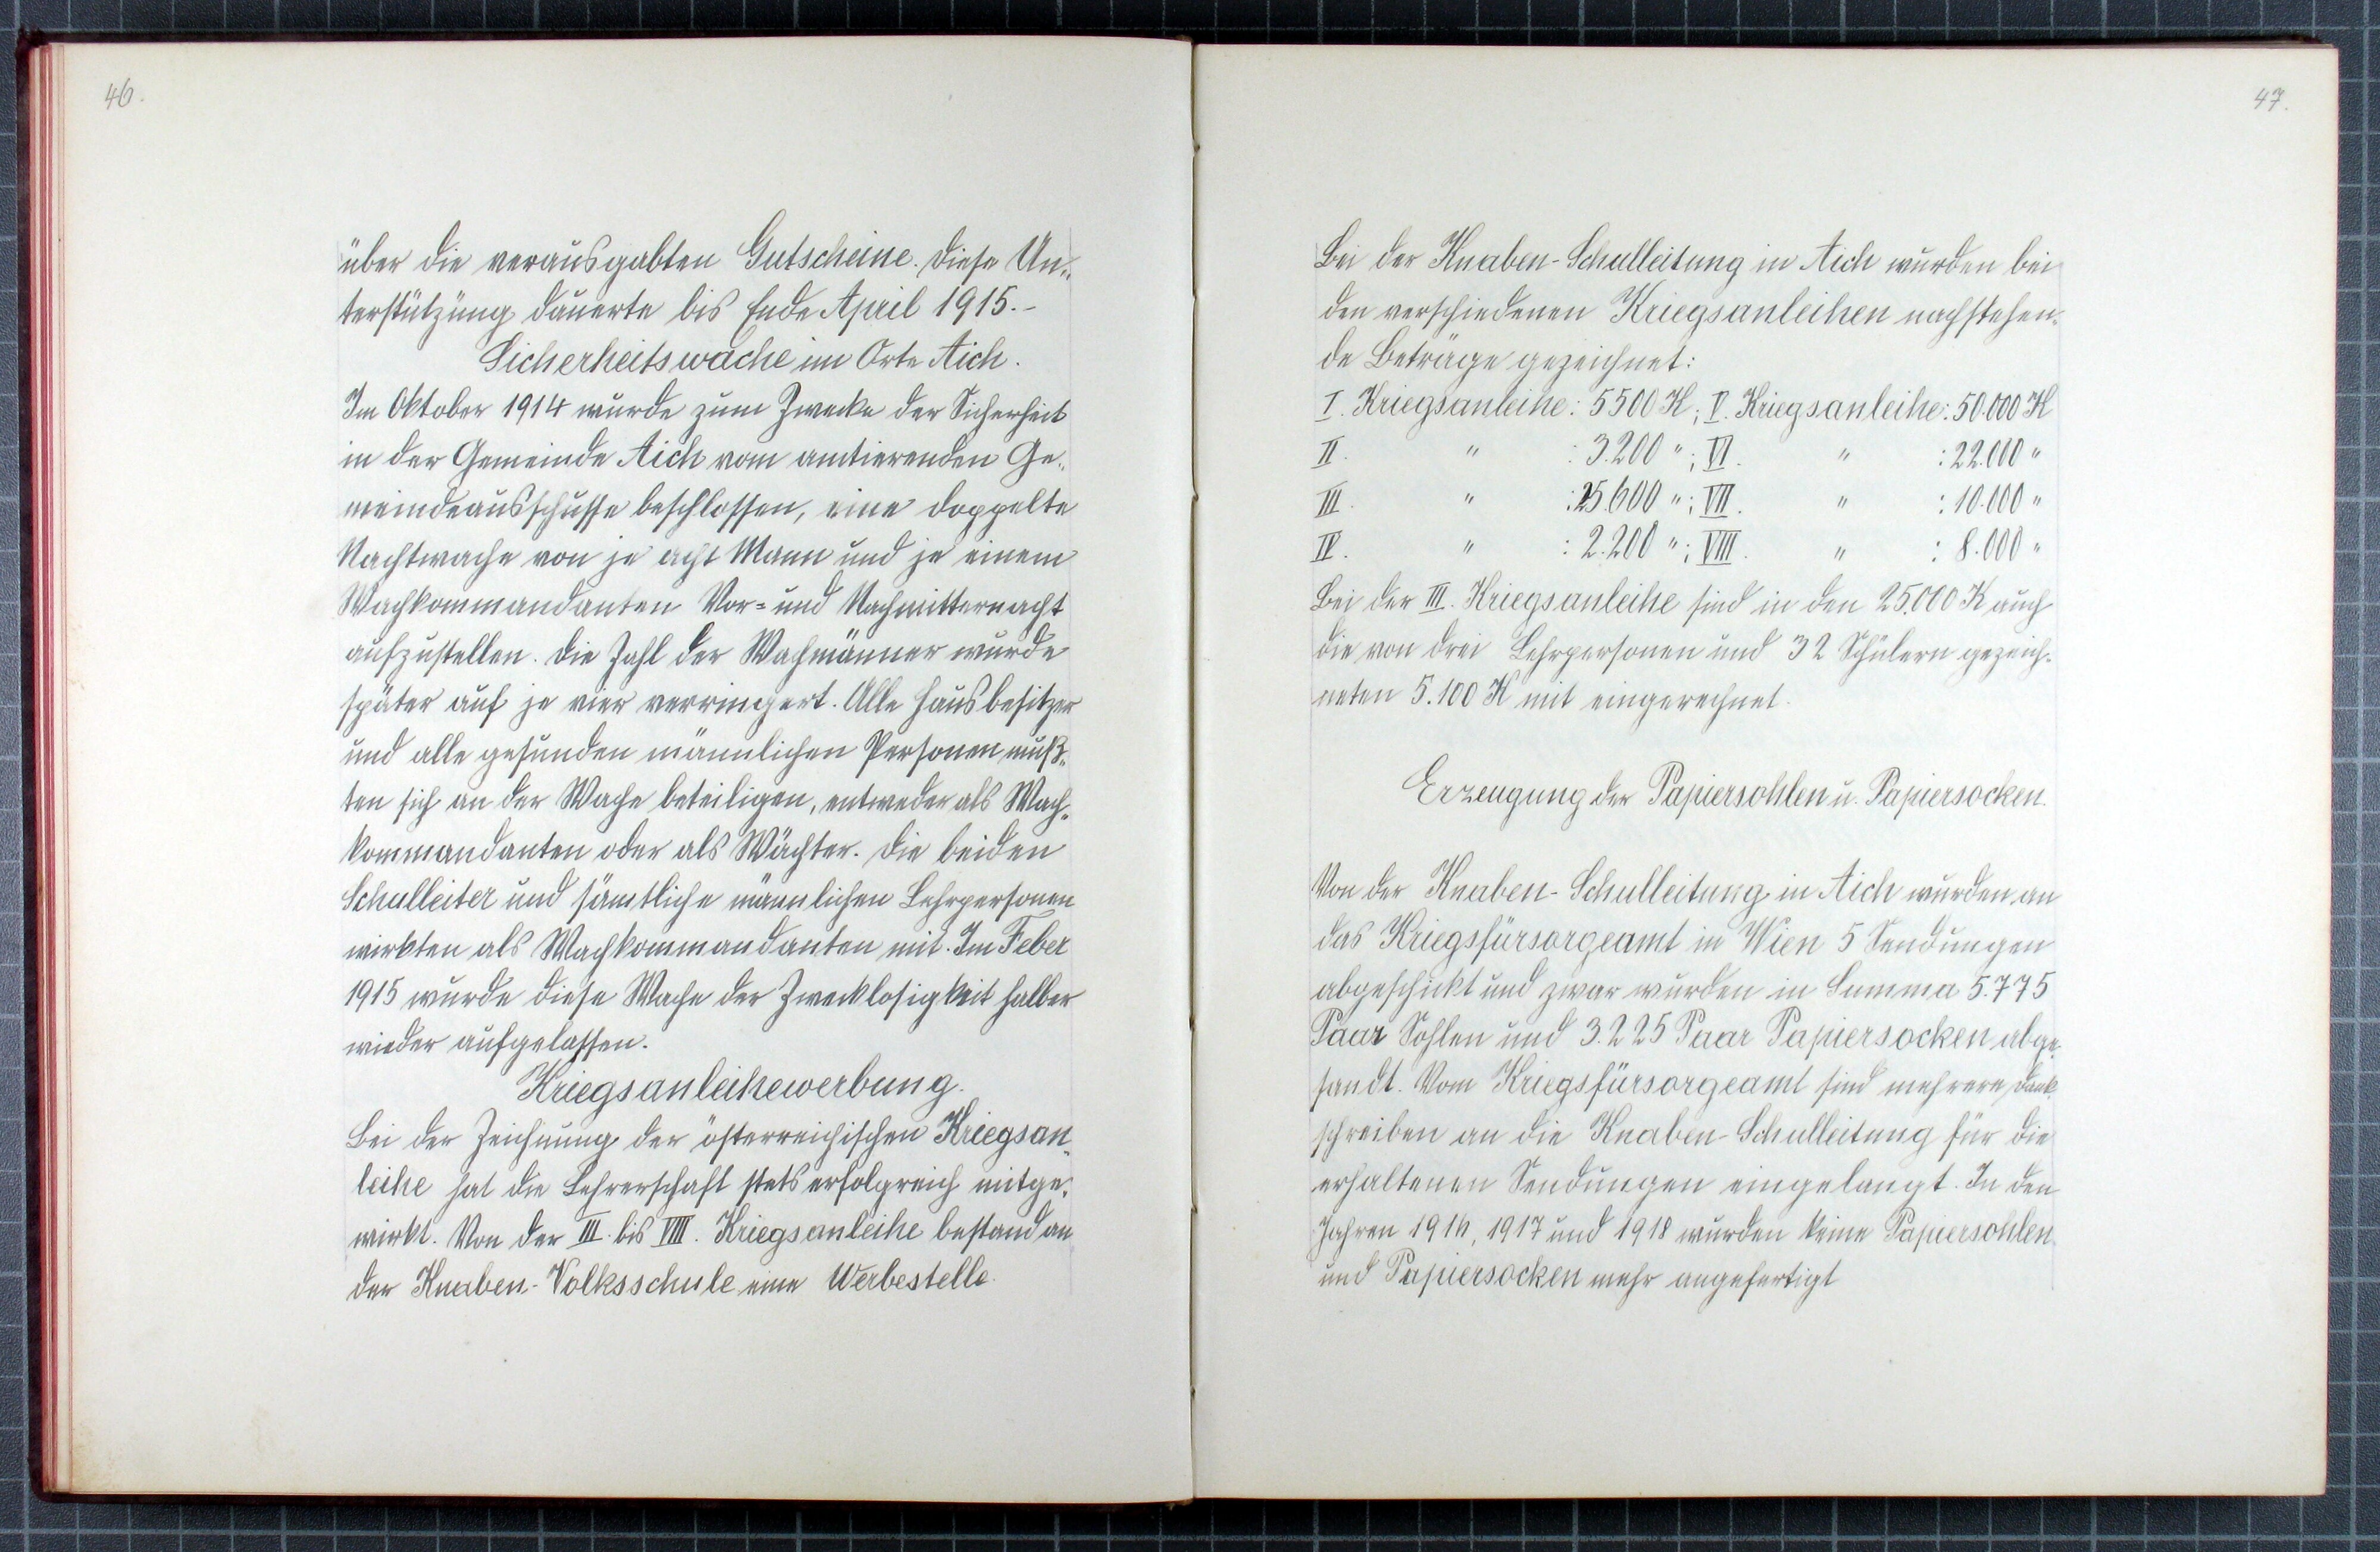 46.
über die verausgabten Gutscheine. Diese Un-
terstützung dauerte bis Ende April 1915.-
Sicherheitswache im Orte Aich.
Im Oktober 1914 wurde zum Zwecke der Sicherheit
in der Gemeinde Aich vom amtierenden Ge-
meindeausschusse beschlossen, eine doppelte
Nachtwache von je acht Mann und je einem
Wachkommandanten Vor- und Nachmitternacht
aufzustellen. Die Zahl der Wachmänner wurde
später auf je vier verringert. Alle Hausbesitzer
und alle gesunden männlichen Personen muß-
ten sich an der Wache beteiligen, entweder als Wach-
kommandanten oder als Wächter. Die beiden
Schulleiter und sämtliche männlichen Lehrpersonen
wirkten als Wachkommandanten mit. Im Feber
1915 wurde diese Wache der Zwecklosigkeit halber
wieder aufgelassen.
Kriegsanleihewerbung.
Bei der Zeichnung der österreichischen Kriegsan-
leihe hat die Lehrerschaft stets erfolgreich mitge-
wirkt. Von der III. bis VIII. Kriegsanleihe bestand an
der Knaben-Volksschule eine Werbestelle.
47.
Bei der Knaben-Schulleitung in Aich wurden bei
den verschiedenen Kriegsanleihen nachstehen-
de Beträge gezeichnet:
I. Kriegsanleihe: 5500 K; V. Kriegsanleihe: 50.000 K
II. " : 3.200 "; VI. " : 22.000 "
III. " : 25.600 "; VII. " : 10.000 "
IV. " : 2.200 "; VIII. " : 8.000 "
Bei der III. Kriegsanleihe sind in den 25.000 K auch
die von drei Lehrpersonen und 32 Schülern gezeich-
neten 5.100 K mit eingerechnet.
Erzeugung der Papiersohlen u. Papiersocken.
Von der Knaben-Schulleitung in Aich wurden an
das Kriegsfürsorgeamt in Wien 5 Sendungen
abgeschickt und zwar wurden in Summa 5.775
Paar Sohlen und 3.225 Paar Papiersocken abge-
sandt. Vom Kriegsfürsorgeamt sind mehrere Dank-
schreiben an die Knaben-Schulleitung für die
erhaltenen Sendungen eingelangt. In den
Jahren 1916, 1917 und 1918 wurden keine Papiersohlen
und Papiersocken mehr angefertigt